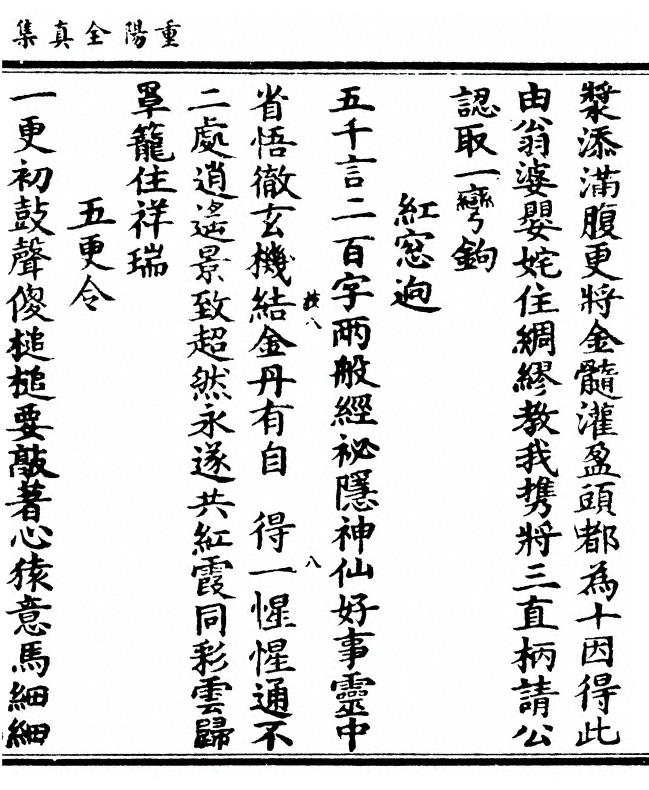 重陽全真集
漿添滿腹更將金髓灌盈頭都為十因得此
由翁婆嬰姹住綢繆教我携將三直柄請公
認取一彎鉤
紅窓逈
五千言二百字兩般經祕隱神仙好事靈中
省悟徹玄機結金丹有自　得一惺惺通不
二處逍遙景致超然永遂共紅霞同彩雲歸
罩籠住祥瑞
五更令
一更初鼓聲傻槌槌要敲著心猿意馬細細
八